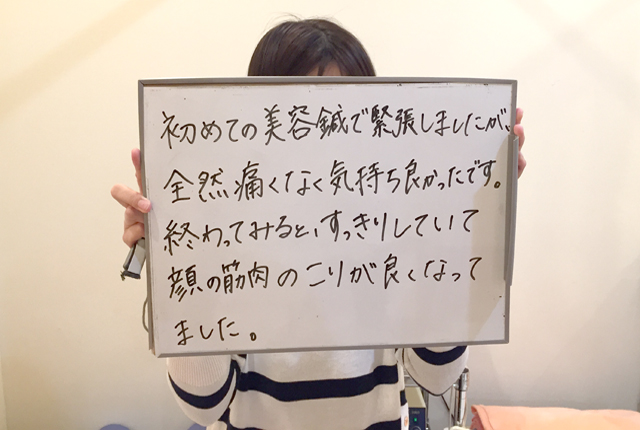 初めての美容鍼で緊張しましたが、
全然痛くなく気持ち良かったです。
終わってみると、すっきりしていて
顔の筋肉のこりが良くなって
ました。